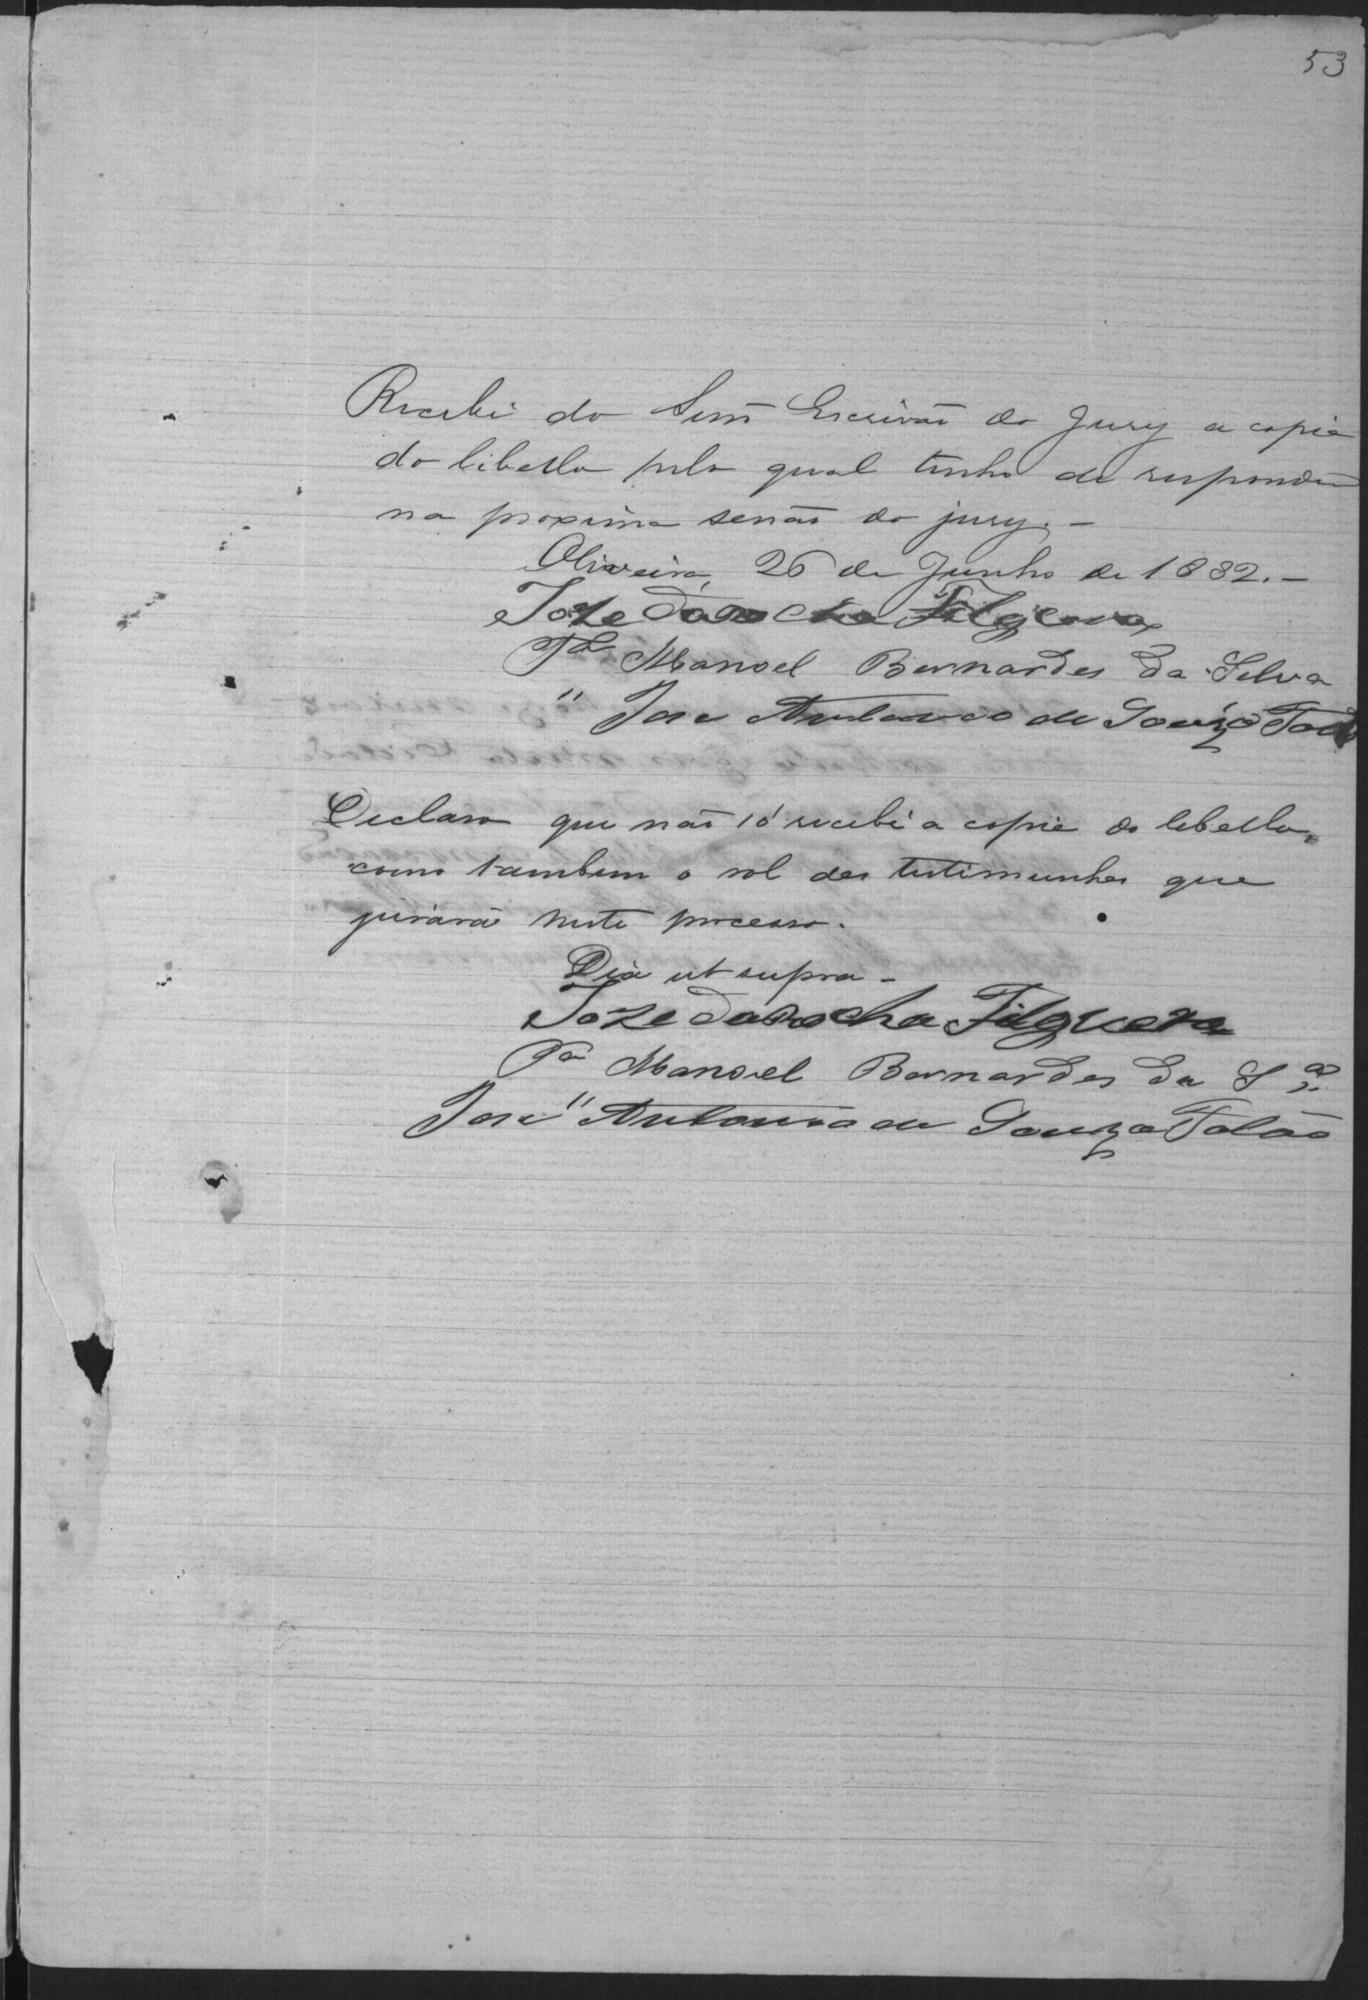 53
Recebi do Senr Escrivão do Jury a copia
do libello pelo qual tenho de responder
na proxima sessão do jury. —
Oliveira, 26 de Junho de 1882. —
Joze Darocha Filgueira
Ta Manoel Bernardes da Silva
" José Antonio de Souza
Declaro que não só recebi a copia do libello,
como tambem o rol das testimunhas que
jurárão neste processo.
Dia ut supra —
Joze Darocha Filgueira
Ta Manoel Bernardes da Sa
José " Antonio de Souza Falcão